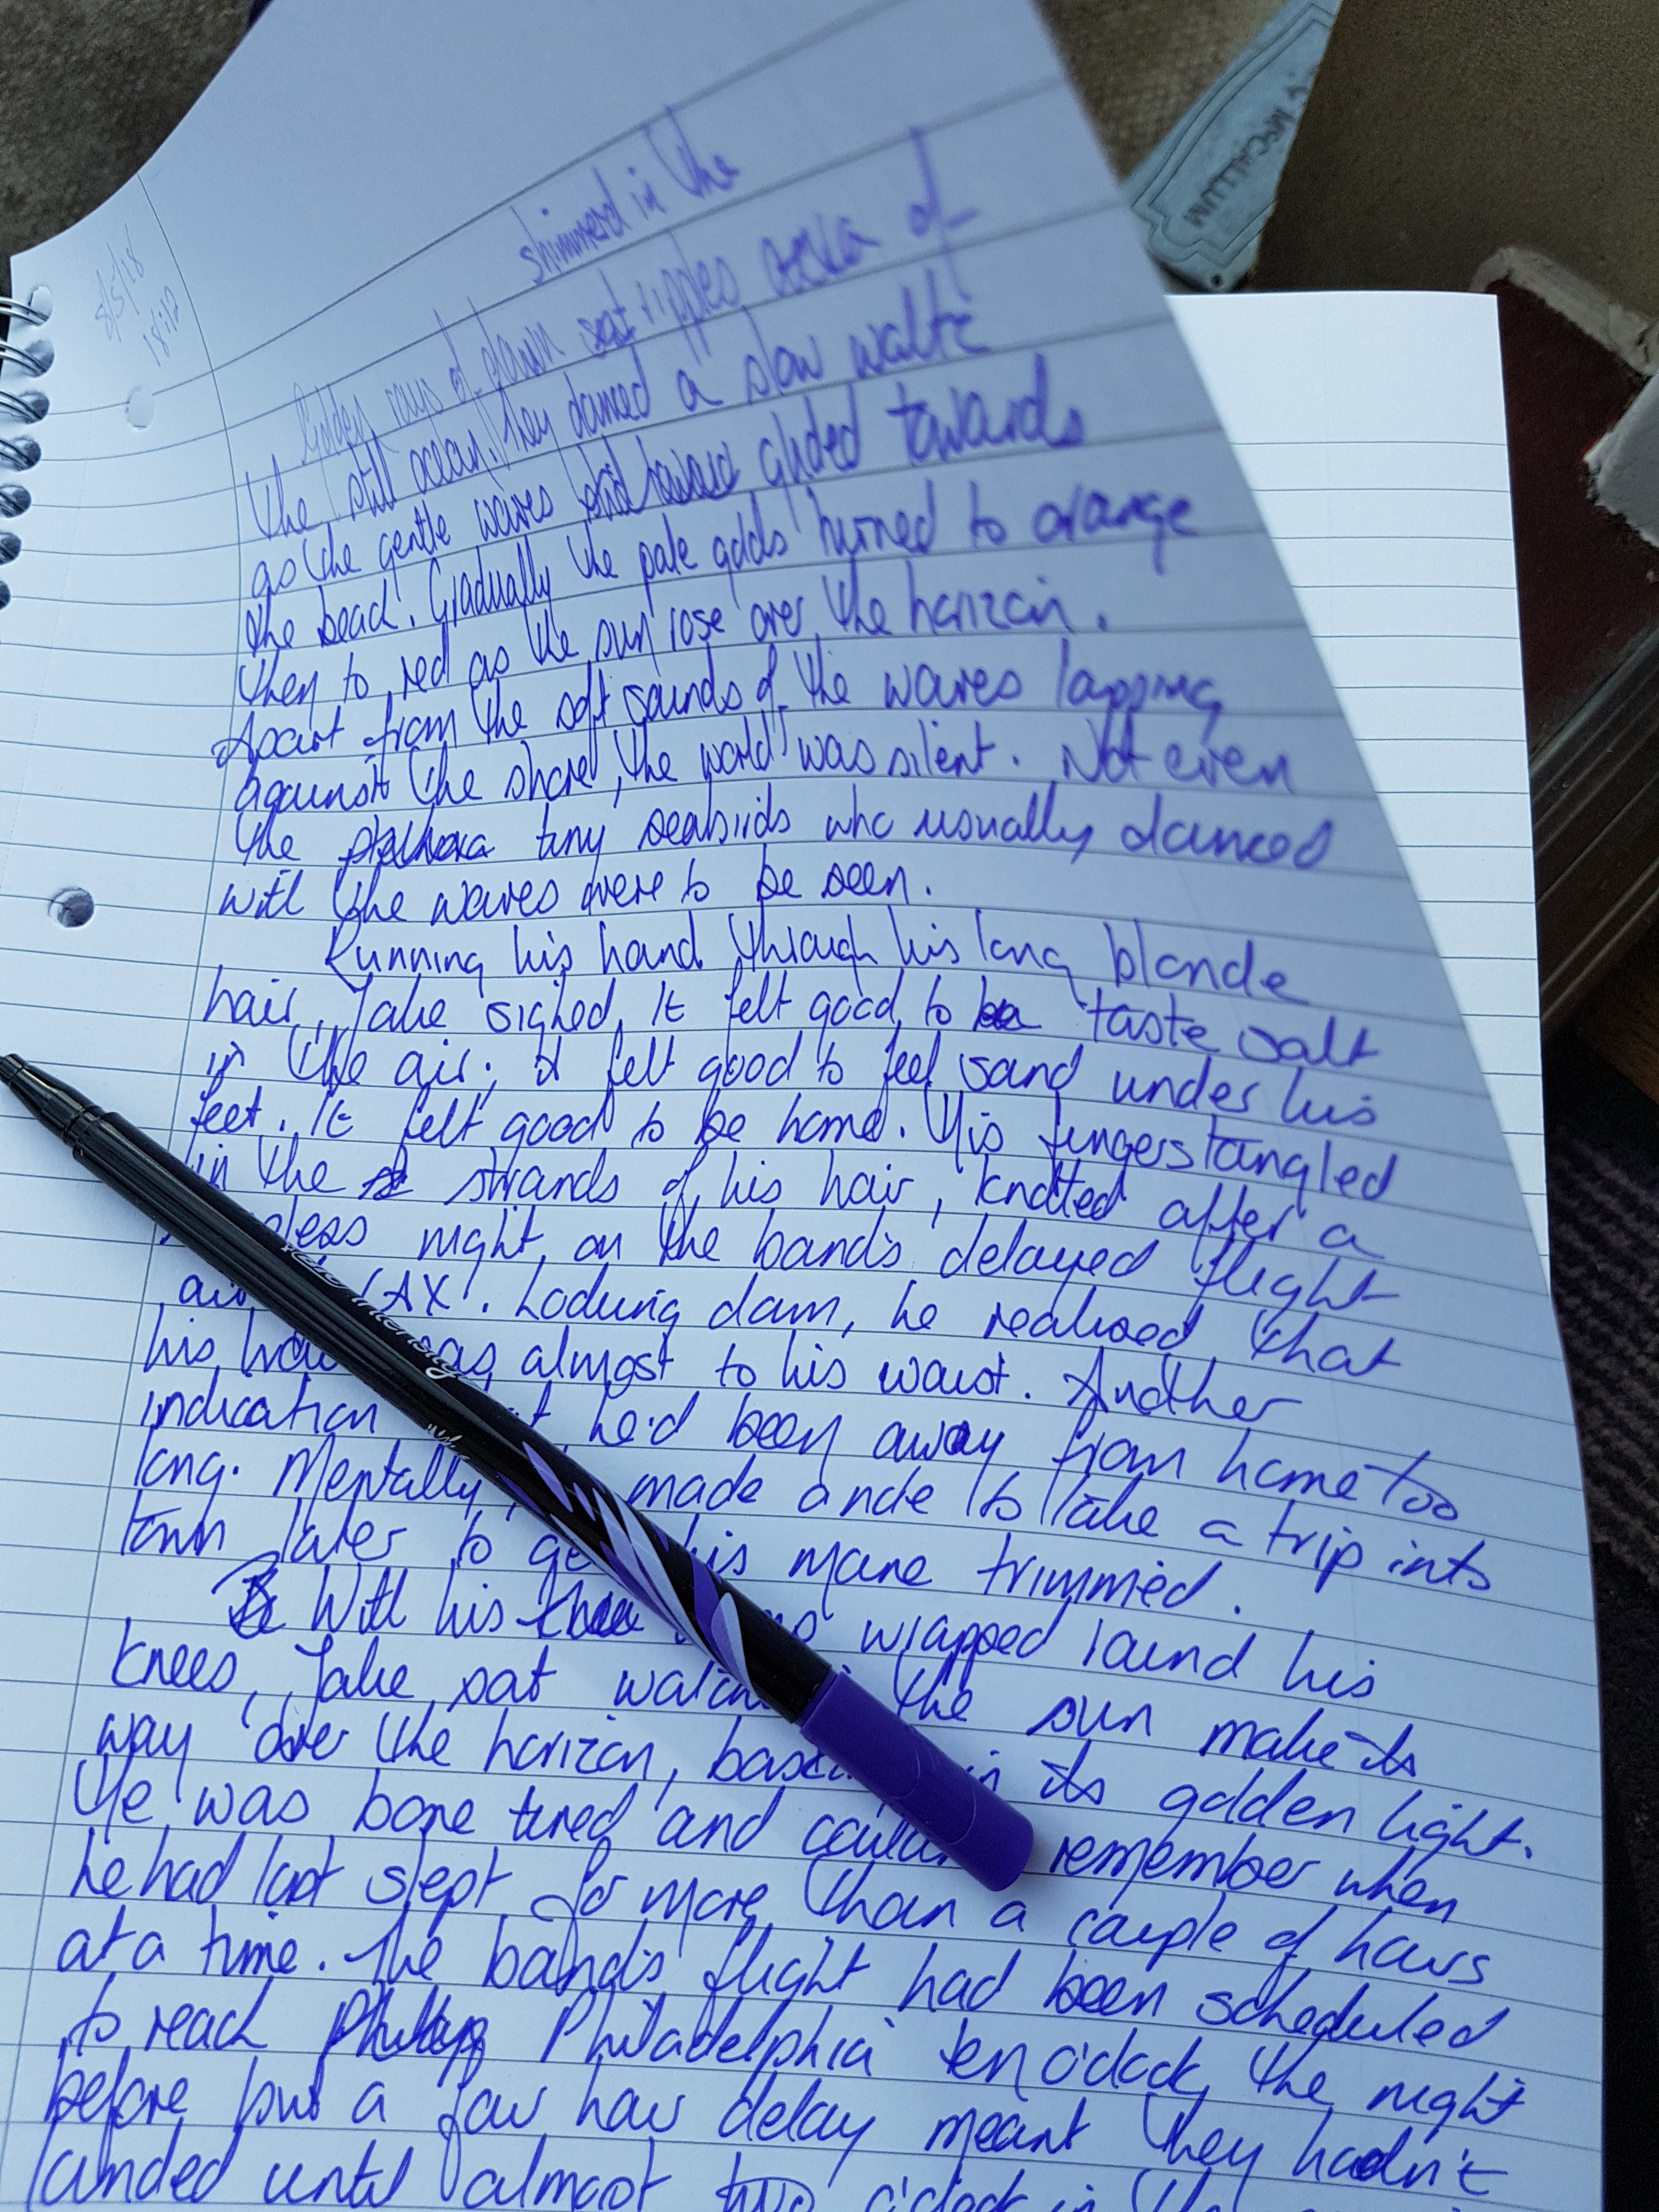 8/5/18
18:12
shimmerd in the
Golden rays of dawn sent ripples across of
the still ocean. They danced a slow waltz
as the gentle waves slid toward glided towards
the beach. Gradually the pale golds turned to orange
then to red as the sun rose over the horizon.
Apart from the soft sounds of the waves lapping
against the shore, the world was silent. Not even
the plethora tiny seabirds who usually danced
with the waves were to be seen.
Running his hand through his long blonde
hair, Jake sighed. It felt good to be taste salt
in the air; it felt good to feel sand under his
feet. It felt good to be home. His fingers tangled
in the strands of his hair, knotted after a
less night on the band's delayed flight
LAX. Looking down, he realised that
his hair was almost to his waist. Another
indication he'd been away from home too
long. Mentally, made a note to take a trip into
town later to get his mane trimmed.
With his wrapped round his
knees, Jake sat watching the sun make its
way over the horizon, in its golden light.
He was bone tired and couldn't remember when
he had last slept for more than a couple of hours
at a time. The band's flight had been scheduled
to reach Philadelphia ten o'clock the night
before but a four hour delay meant they hadn't
landed until almost two o'clock in the
McCALLUM
Intensity